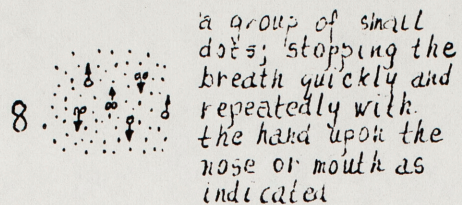 a group of small
dots; stopping the
breath quickly and
8 repeatedly with
the hand upon the
nose or mouth as
indicated